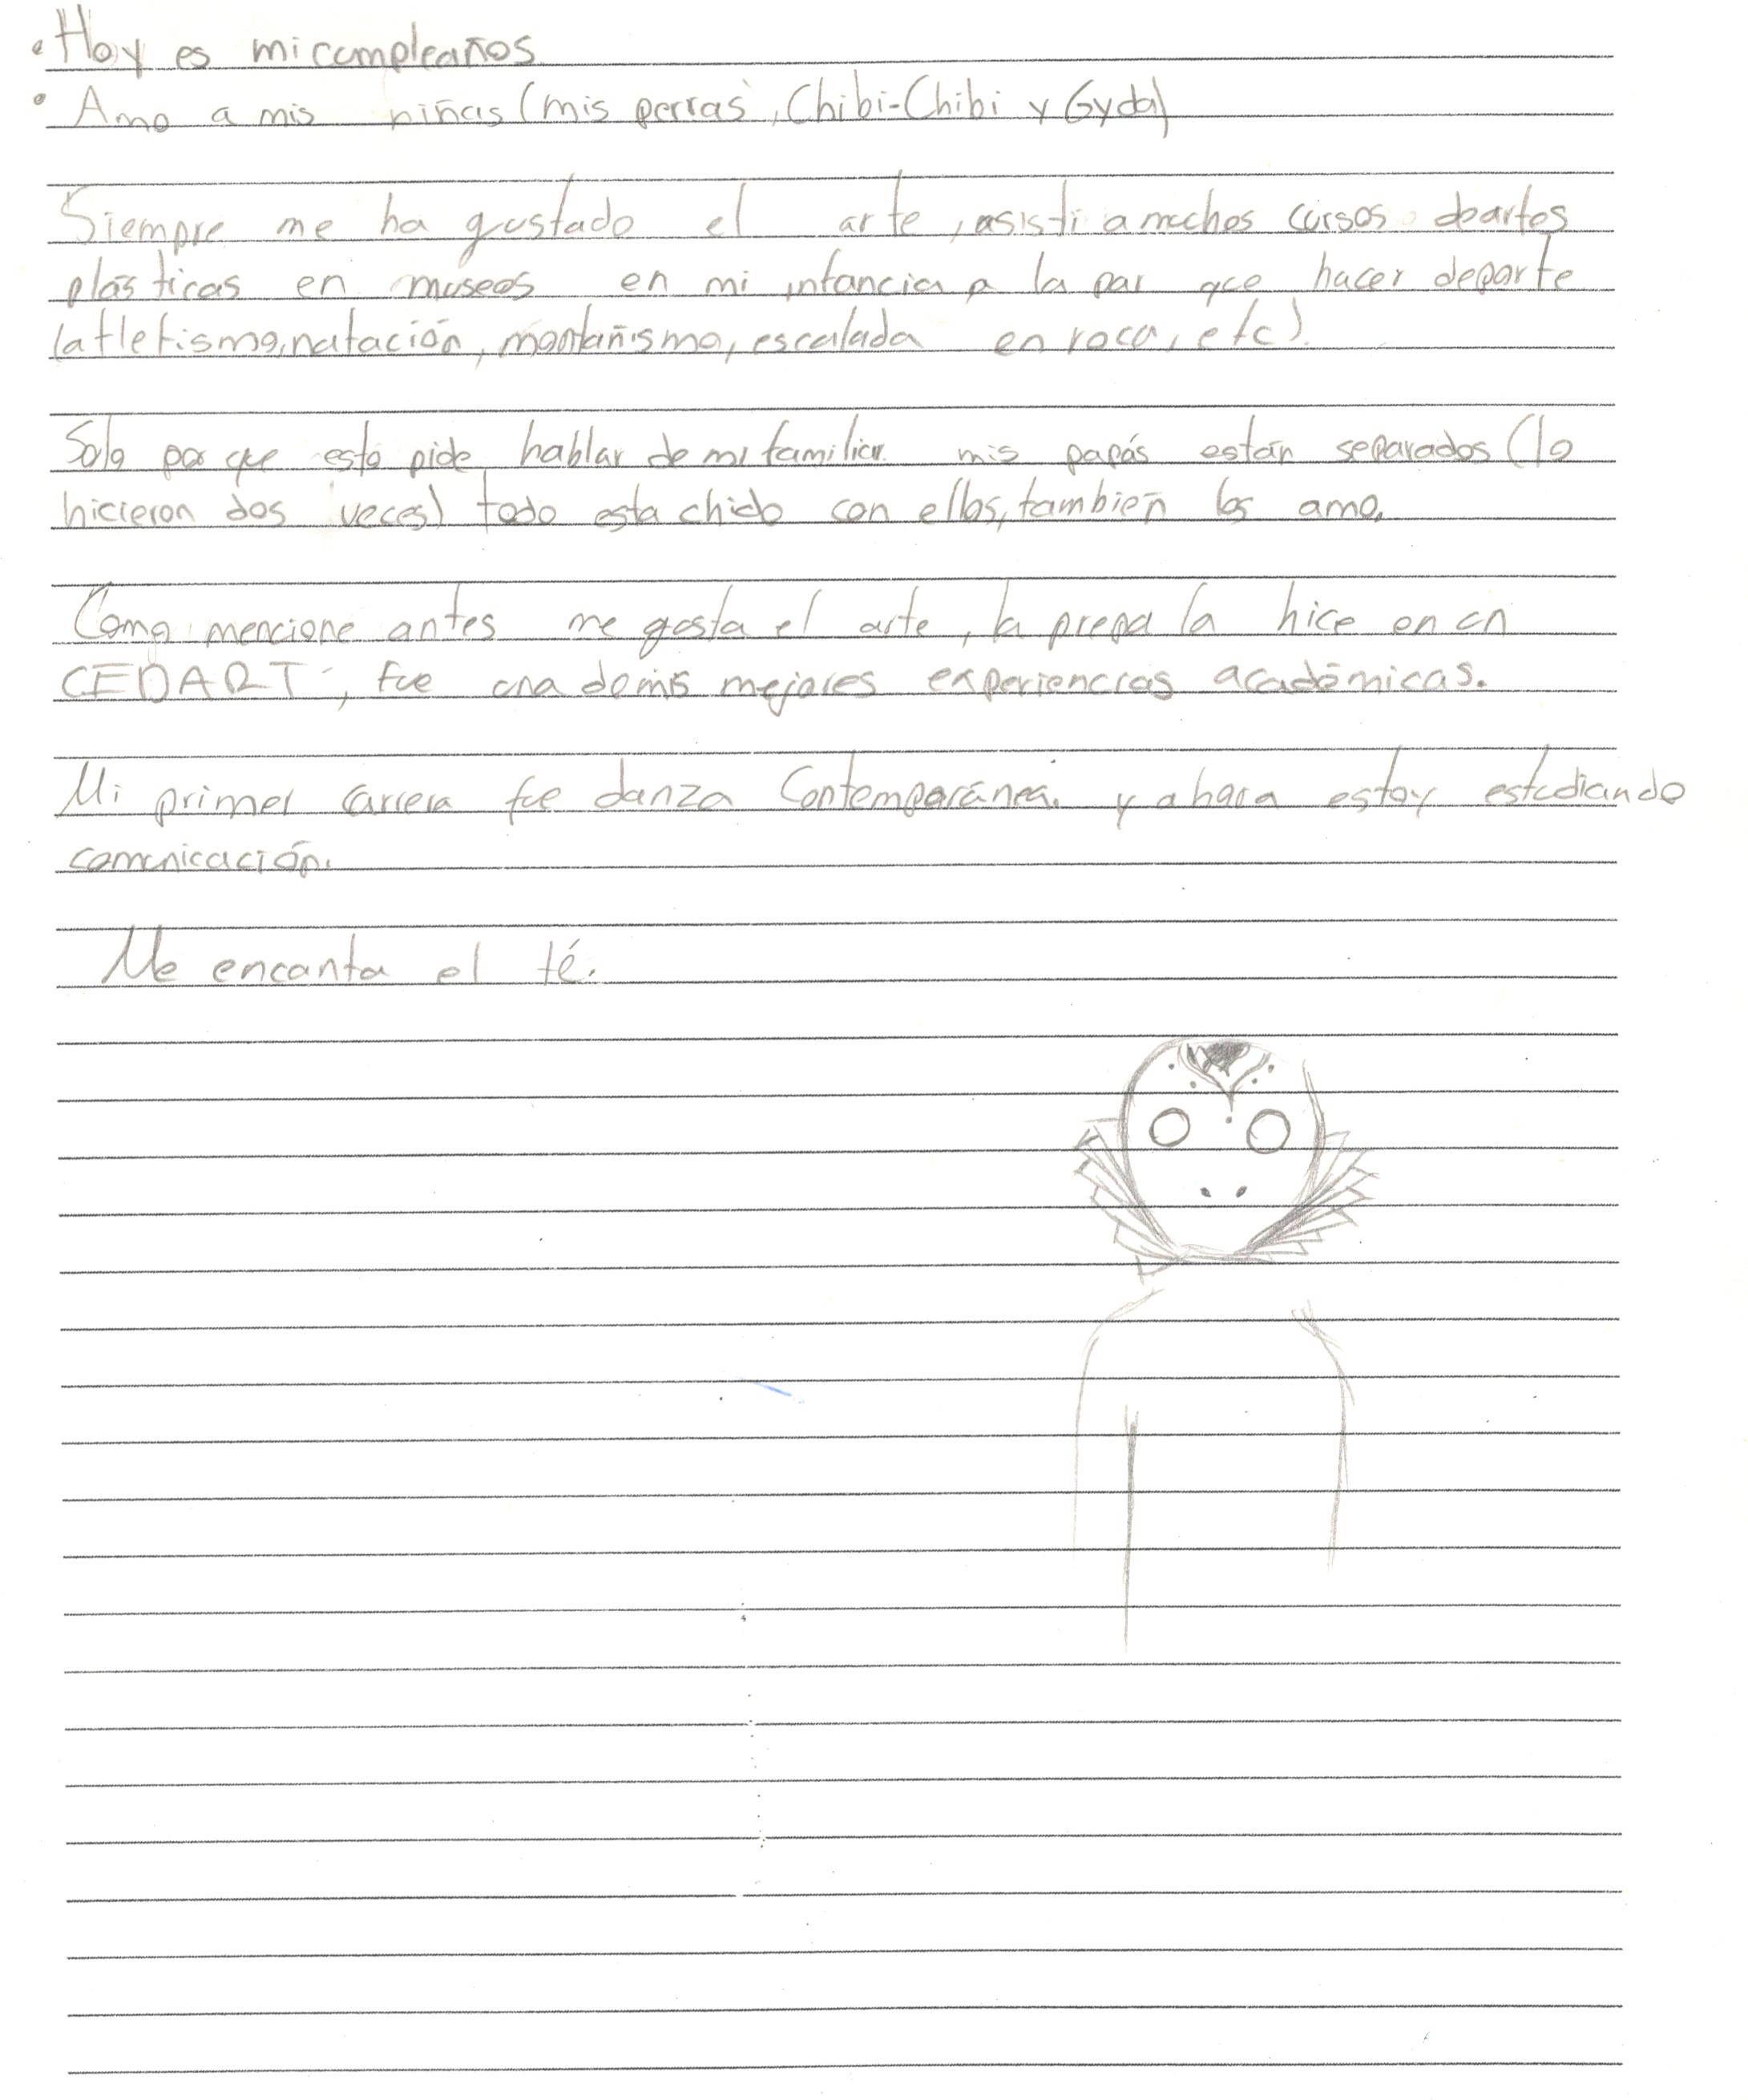 • Hoy es mi cumpleaños
• Amo a mis niñas (mis perras, Chibi-Chibi y Gyda)
Siempre me ha gustado el arte, asisti a muchos cursos de artes
plásticas en museos en mi infancia a la par que hacer deporte
(atletismo, natación, montañismo, escalada en roca, etc).
Solo por que esto pide hablar de mi familia mis papás están separados (lo
hicieron dos veces) todo esta chido con ellos, también los amo.
Como mencione antes me gusta el arte, la prepa la hice en un
CEDART, fue una de mis mejores experiencias académicas.
Mi primer carrera fue danza Contemporánea. y ahora estoy estudiando
comunicación.
Me encanta el té.